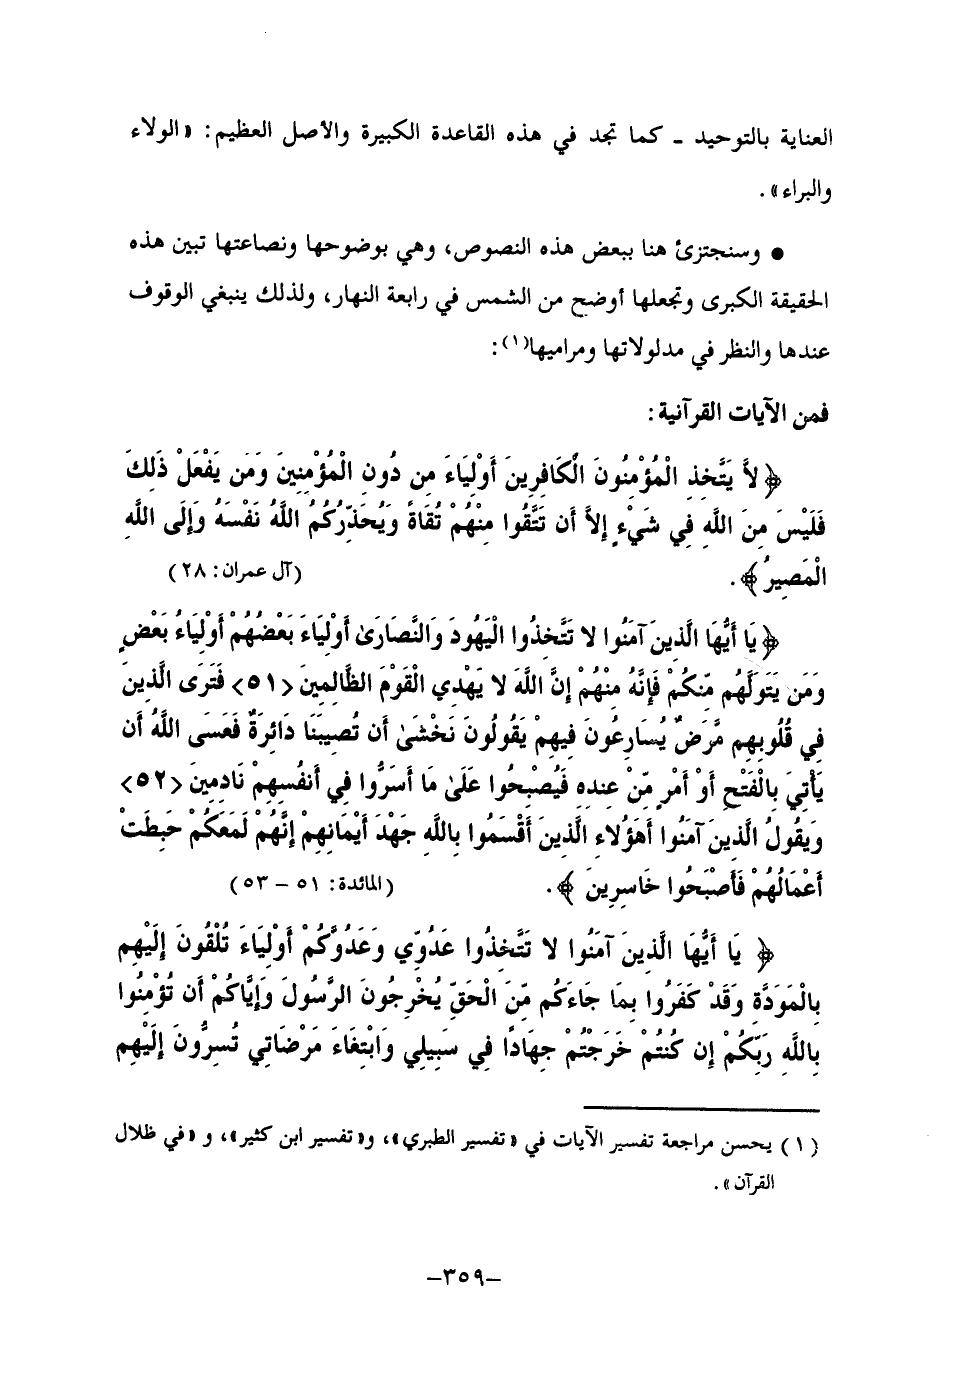 العناية بالتوحيد ـ كما تجد في هذه القاعدة الكبيرة والأصل العظيم: «الولاء
والبراء».
● وسنجتزئ هنا ببعض هذه النصوص، وهي بوضوحها ونصاعتها تبين هذه
الحقيقة الكبرى وتجعلها أوضح من الشمس في رابعة النهار، ولذلك ينبغي الوقوف
عندها والنظر في مدلولاتها ومراميها(١):
فمن الآيات القرآنية:
﴿لاَّ يَتَّخِذِ الْمُؤْمِنُونَ الْكَافِرِينَ أَوْلِيَاءَ مِن دُونِ الْمُؤْمِنِينَ وَمَن يَفْعَلْ ذَلِكَ
فَلَيْسَ مِنَ اللَّهِ فِي شَيْءٍ إِلاَّ أَن تَتَّقُوا مِنْهُمْ تُقَاةً وَيُحَذِّرُكُمُ اللَّهُ نَفْسَهُ وَإِلَى اللَّهِ
الْمَصِيرُ﴾. (آل عمران: ٢٨)
﴿يَا أَيُّهَا الَّذِينَ آمَنُوا لا تَتَّخِذُوا الْيَهُودَ وَالنَّصَارَىٰ أَوْلِيَاءَ بَعْضُهُمْ أَوْلِيَاءُ بَعْضٍ
وَمَن يَتَوَلَّهُم مِّنكُمْ فَإِنَّهُ مِنْهُمْ إِنَّ اللَّهَ لا يَهْدِي الْقَوْمَ الظَّالِمِينَ <٥١> فَتَرَى الَّذِينَ
فِي قُلُوبِهِم مَّرَضٌ يُسَارِعُونَ فِيهِمْ يَقُولُونَ نَخْشَىٰ أَن تُصِيبَنَا دَائِرَةٌ فَعَسَى اللَّهُ أَن
يَأْتِيَ بِالْفَتْحِ أَوْ أَمْرٍ مِّنْ عِندِهِ فَيُصْبِحُوا عَلَىٰ مَا أَسَرُّوا فِي أَنفُسِهِمْ نَادِمِينَ <٥٢>
وَيَقُولُ الَّذِينَ آمَنُوا أَهَؤُلاءِ الَّذِينَ أَقْسَمُوا بِاللَّهِ جَهْدَ أَيْمَانِهِمْ إِنَّهُمْ لَمَعَكُمْ حَبِطَتْ
أَعْمَالُهُمْ فَأَصْبَحُوا خَاسِرِينَ﴾. (المائدة: ٥١ – ٥٣)
﴿يَا أَيُّهَا الَّذِينَ آمَنُوا لا تَتَّخِذُوا عَدُوِّي وَعَدُوَّكُمْ أَوْلِيَاءَ تُلْقُونَ إِلَيْهِم
بِالْمَوَدَّةِ وَقَدْ كَفَرُوا بِمَا جَاءَكُم مِّنَ الْحَقِّ يُخْرِجُونَ الرَّسُولَ وَإِيَّاكُمْ أَن تُؤْمِنُوا
بِاللَّهِ رَبِّكُمْ إِن كُنتُمْ خَرَجْتُمْ جِهَادًا فِي سَبِيلِي وَابْتِغَاءَ مَرْضَاتِي تُسِرُّونَ إِلَيْهِم
(١) يحسن مراجعة تفسير الآيات في «تفسير الطبري»، و«تفسير ابن كثير»، و «في ظلال
القرآن».
–٣٥٩–